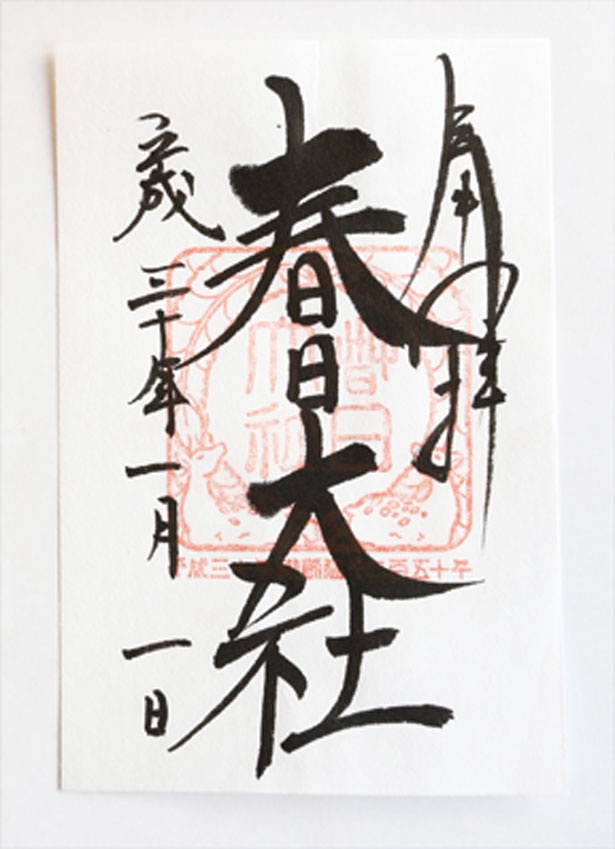 奉拝
春日大社
平成三十年一月一日
春日
大社
平成三十 百五十年